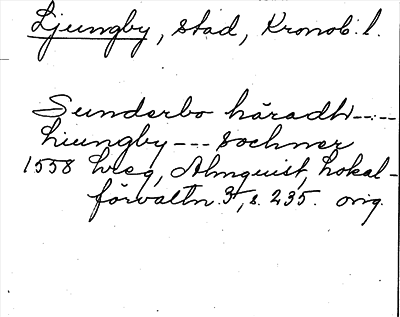 Ljungby, stad, Kronob. l.
Sunderbo häradh -----
Liungby --- sochner
1558 Almquist, Lokal-
förvaltn. 3, s. 235. orig.